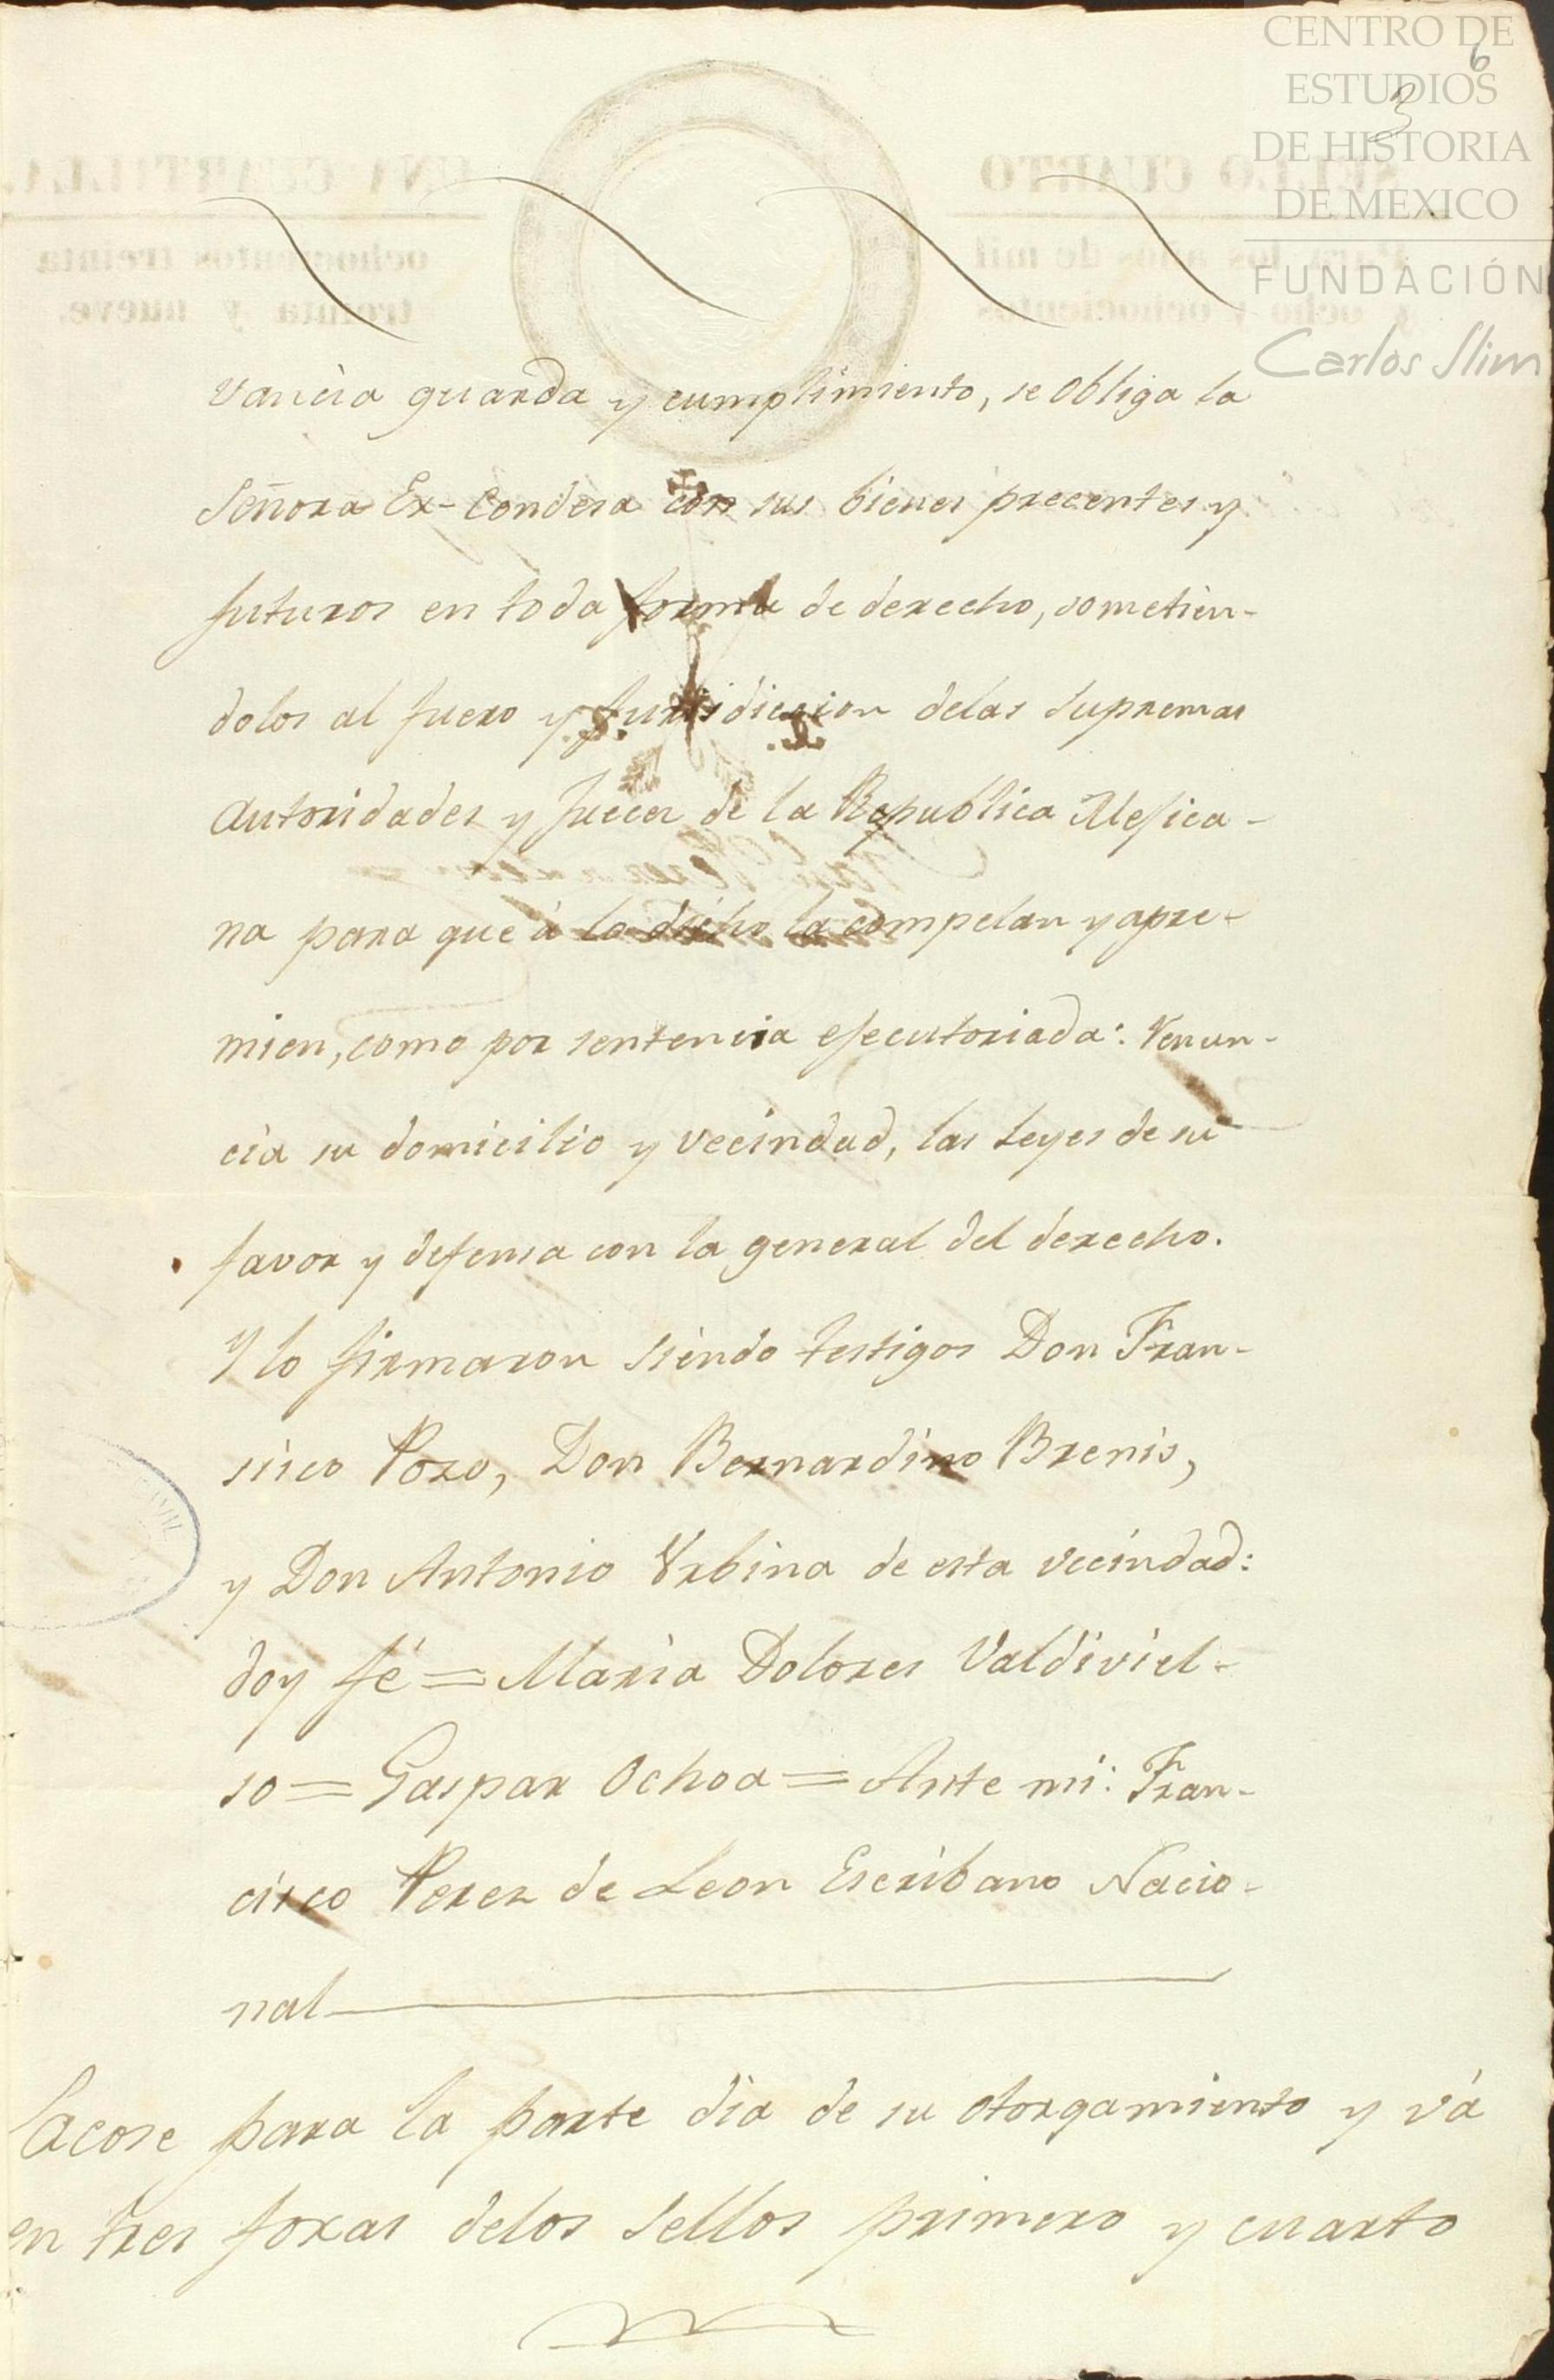 CENTRO DE
ESTUDIOS
DE HISTORIA
DE MEXICO
FUNDACIÓN
Carlos Slim
6
3
UNA CUARTILLA.
SELLO CUARTO
Para los años de mil ochocientos treinta
y ocho y ochocientos treinta y nueve.
vancia guarda y cumplimiento, se obliga la
Señora Ex-Condesa con sus bienes precentes y
futuros en toda forma de derecho, sometien-
dolos al fuero y jurisdiccion delas Supremas
Autoridades y Jueces de la Republica Mejica-
na para que á lo dicho la compelan y apre-
mien, como por sentencia ejecutoriada: renun-
cia su domicilio y vecindad, las Leyes de su
favor y defensa con la general del derecho.
Y lo firmaron siendo testigos Don Fran-
sisco Pozo, Don Bernardino Brenis,
y Don Antonio Urbina de esta vecindad:
doy fé = Maria Dolores Valdiviel-
so = Gaspar Ochoa = Ante mi: Fran-
cisco Perez de Leon Escribano Nacio-
nal
Sacose para la parte dia de su otorgamiento y vá
en tres foxas delos sellos primero y cuarto